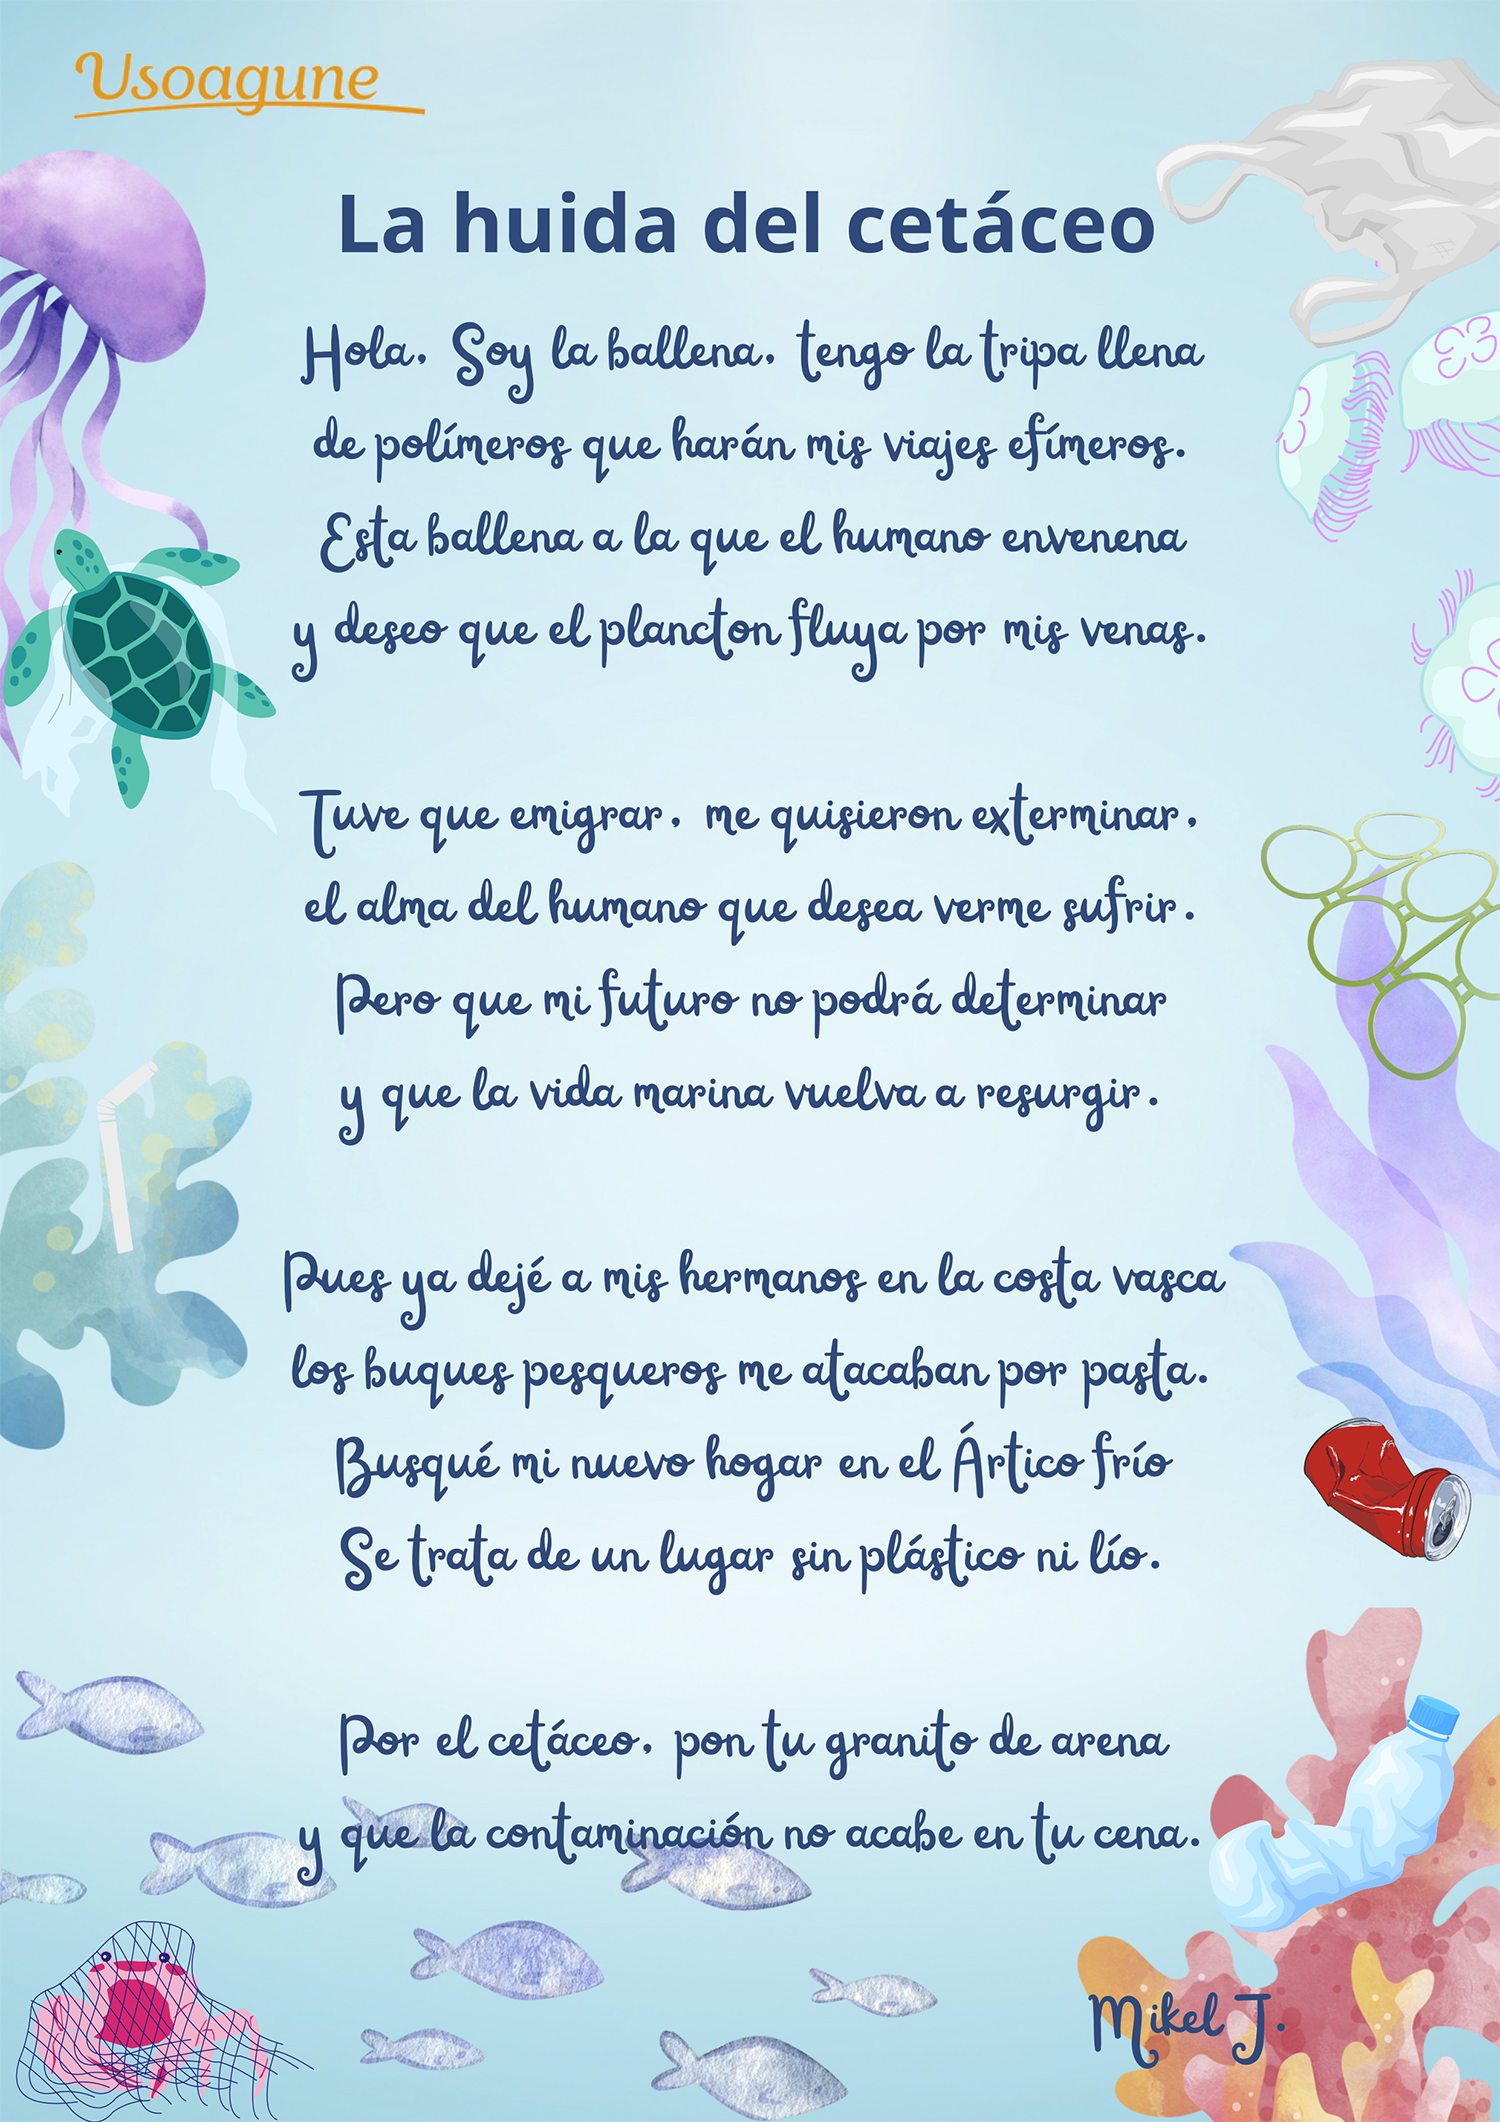 Usoagune
La huida del cetáceo
Hola, Soy la ballena, tengo la tripa llena
de polímeros que harán mis viajes efímeros.
Esta ballena a la que el humano envenena
y deseo que el plancton fluya por mis venas.
Tuve que emigrar, me quisieron exterminar,
el alma del humano que desea verme sufrir.
Pero que mi futuro no podrá determinar
y que la vida marina vuelva a resurgir.
Pues ya dejé a mis hermanos en la costa vasca
los buques pesqueros me atacaban por pasta.
Busqué mi nuevo hogar en el Ártico frío
Se trata de un lugar sin plástico ni lío.
Por el cetáceo, pon tu granito de arena
y que la contaminación no acabe en tu cena.
Mikel J.